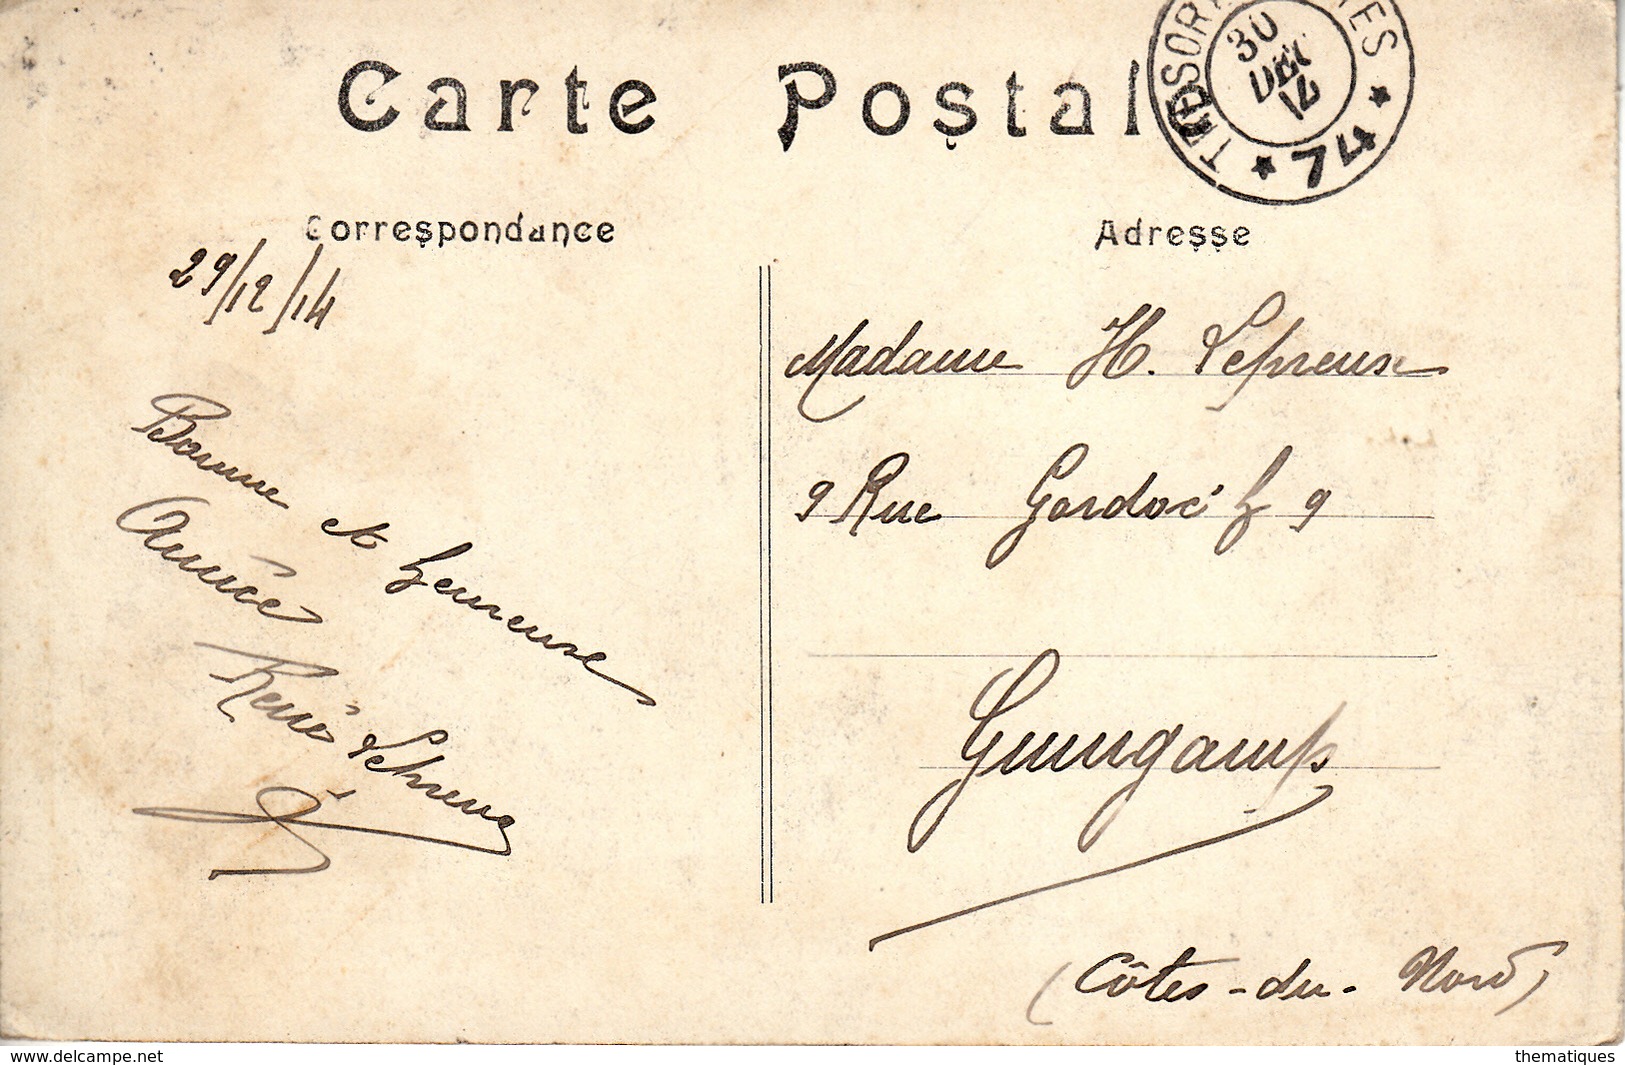 Carte Postal
TRESOR TES
30
DEC
14
* 74 *
Correspondance
Adresse
29/12/14
Madame H. Lepreux
9 Rue 9
Bonne et heureuse
Année
René Lepreux
Guingamp
(Côtes-du-Nord)
www.delcampe.net
thematiques